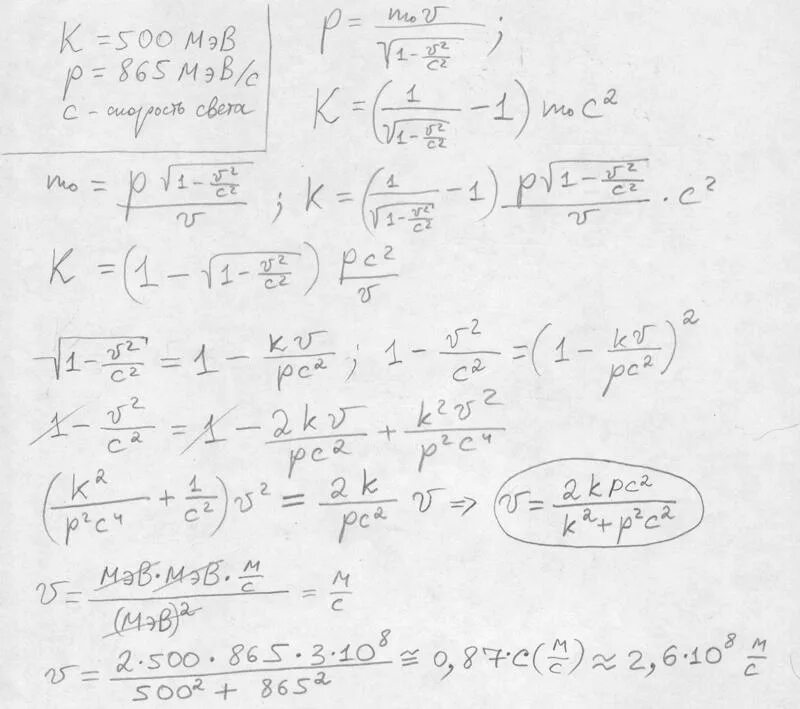 K = 500 МэВ
p = 865 МэВ/с
c - скорость света
p = m₀v / √(1 - v²/c²) ;
K = (1/√(1 - v²/c²) - 1) m₀c²
m₀ = p√(1 - v²/c²) / v ; K = (1/√(1 - v²/c²) - 1) p√(1 - v²/c²) / v · c²
K = (1 - √(1 - v²/c²)) pc²/v
√(1 - v²/c²) = 1 - kv/pc² ; 1 - v²/c² = (1 - kv/pc²)²
1 - v²/c² = 1 - 2kv/pc² + k²v²/p²c⁴
(k²/p²c⁴ + 1/c²) v² = 2k/pc² v => v = 2kpc² / k² + p²c²
v = МэВ·МэВ·м/с / (МэВ)² = м/с
v = 2·500·865·3·10⁸ / 500² + 865² ≅ 0,87·c (м/с) ≈ 2,6·10⁸ м/с